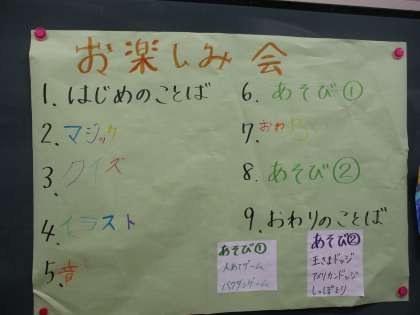 お楽しみ会
1. はじめのことば
2. マジック
3. クイズ
4. イラスト
5. 音
6. あそび①
7. おわ
8. あそび②
9. おわりのことば
あそび①
人あてゲーム
バクダンゲーム
あそび②
王さまドッジ
アメリカンドッジ
しっぽとり